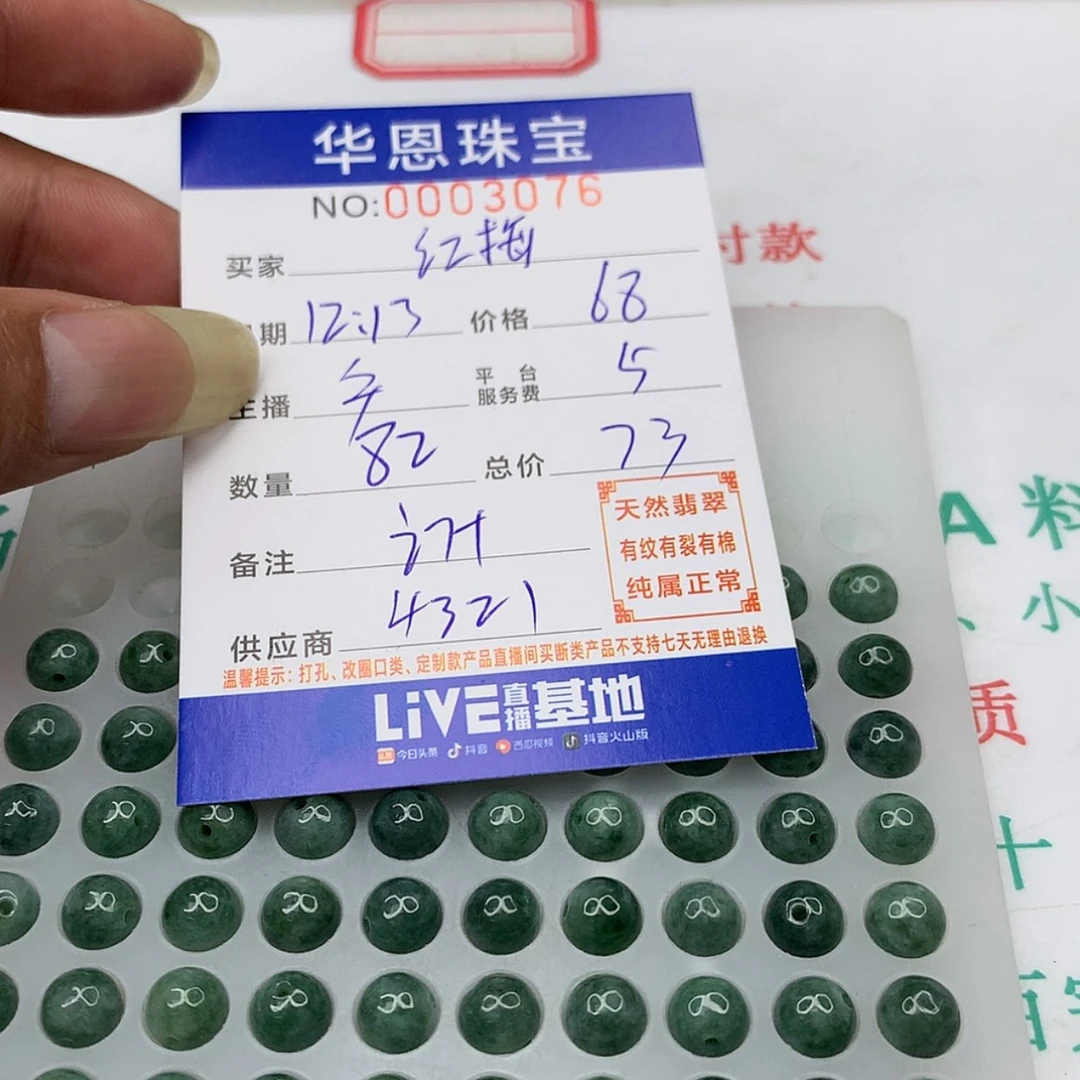 华恩珠宝
NO:0003076
买家 红梅
期 12:13 价格 68
主播 平台服务费 5
数量 82 总价 73
备注
供应商 4321
天然翡翠
有纹有裂有棉
纯属正常
温馨提示：打孔、改圈口类、定制款产品直播间买断类产品不支持七天无理由退换
LiVE直播基地
今日头条 抖音 西瓜视频 抖音火山版
付款
A 料
、小
质
十